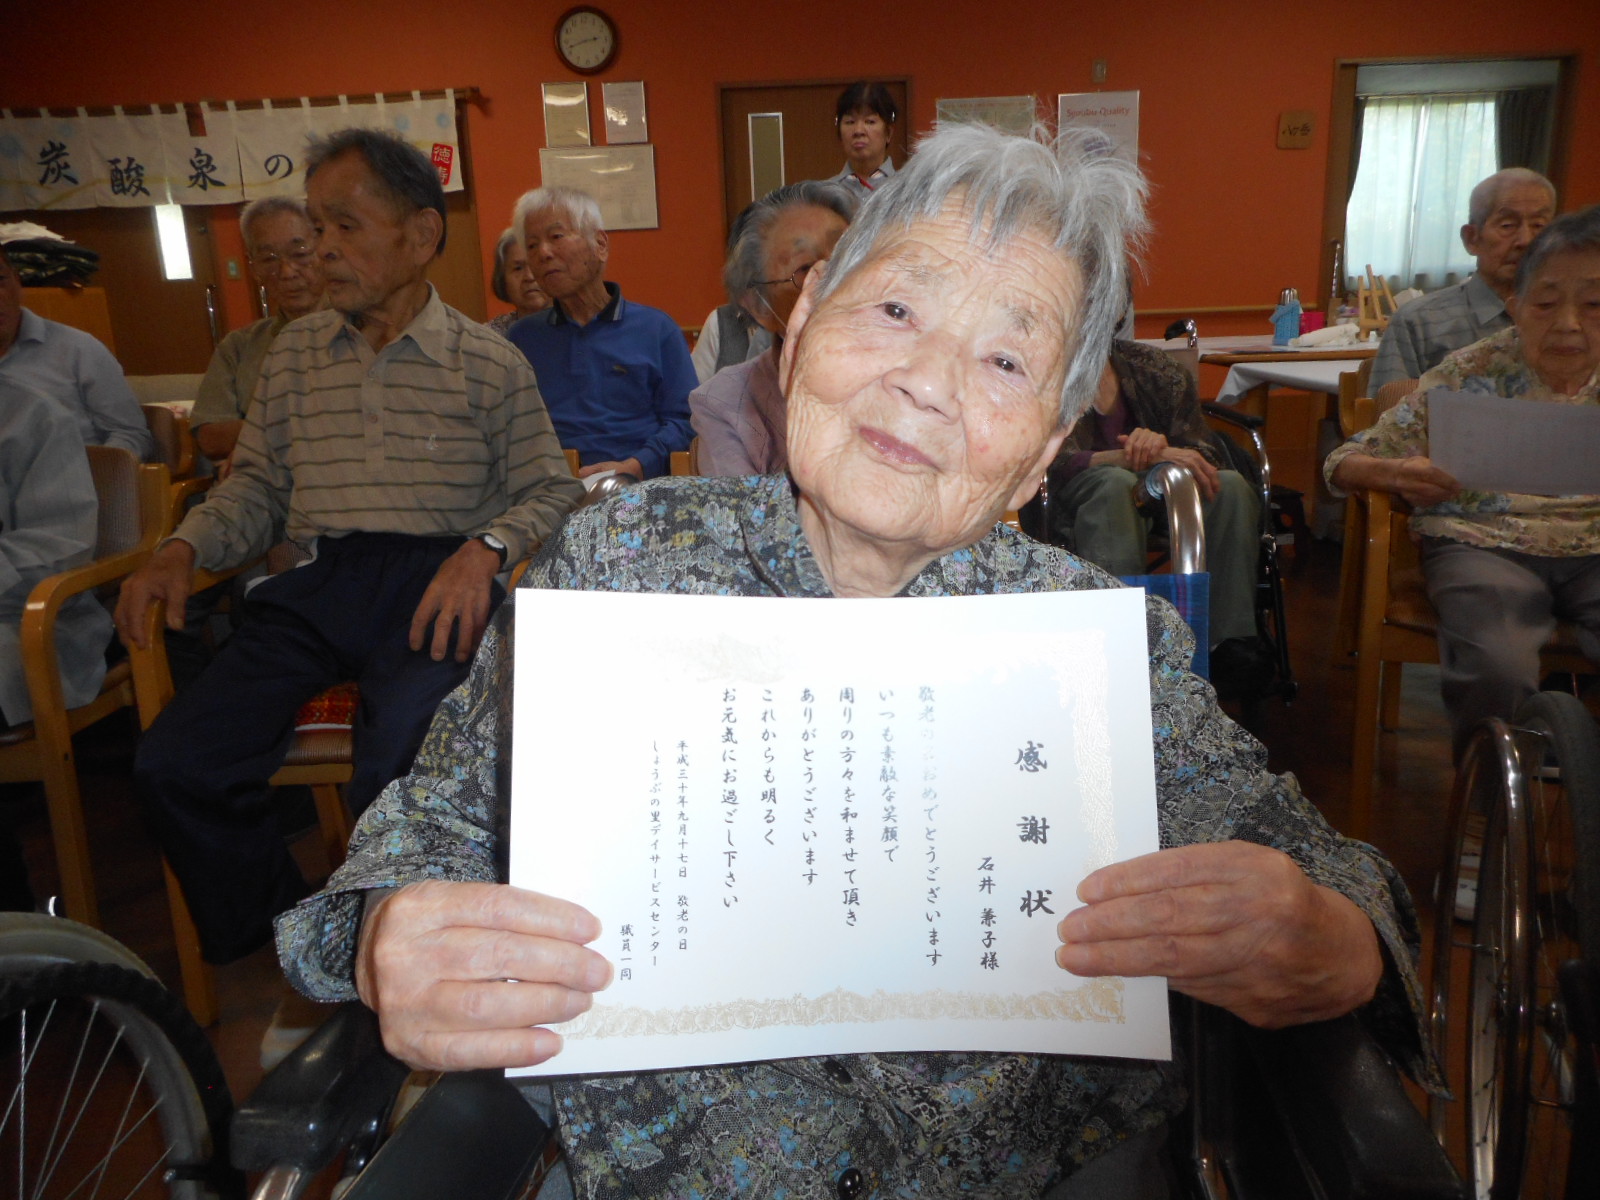 炭酸泉の
徳寿
Quality
感謝状
石井 兼子様
敬老の日おめでとうございます
いつも素敵な笑顔で
周りの方々を和ませて頂き
ありがとうございます
これからも明るく
お元気にお過ごし下さい
平成三十年九月十七日 敬老の日
しょうぶの里デイサービスセンター
職員一同